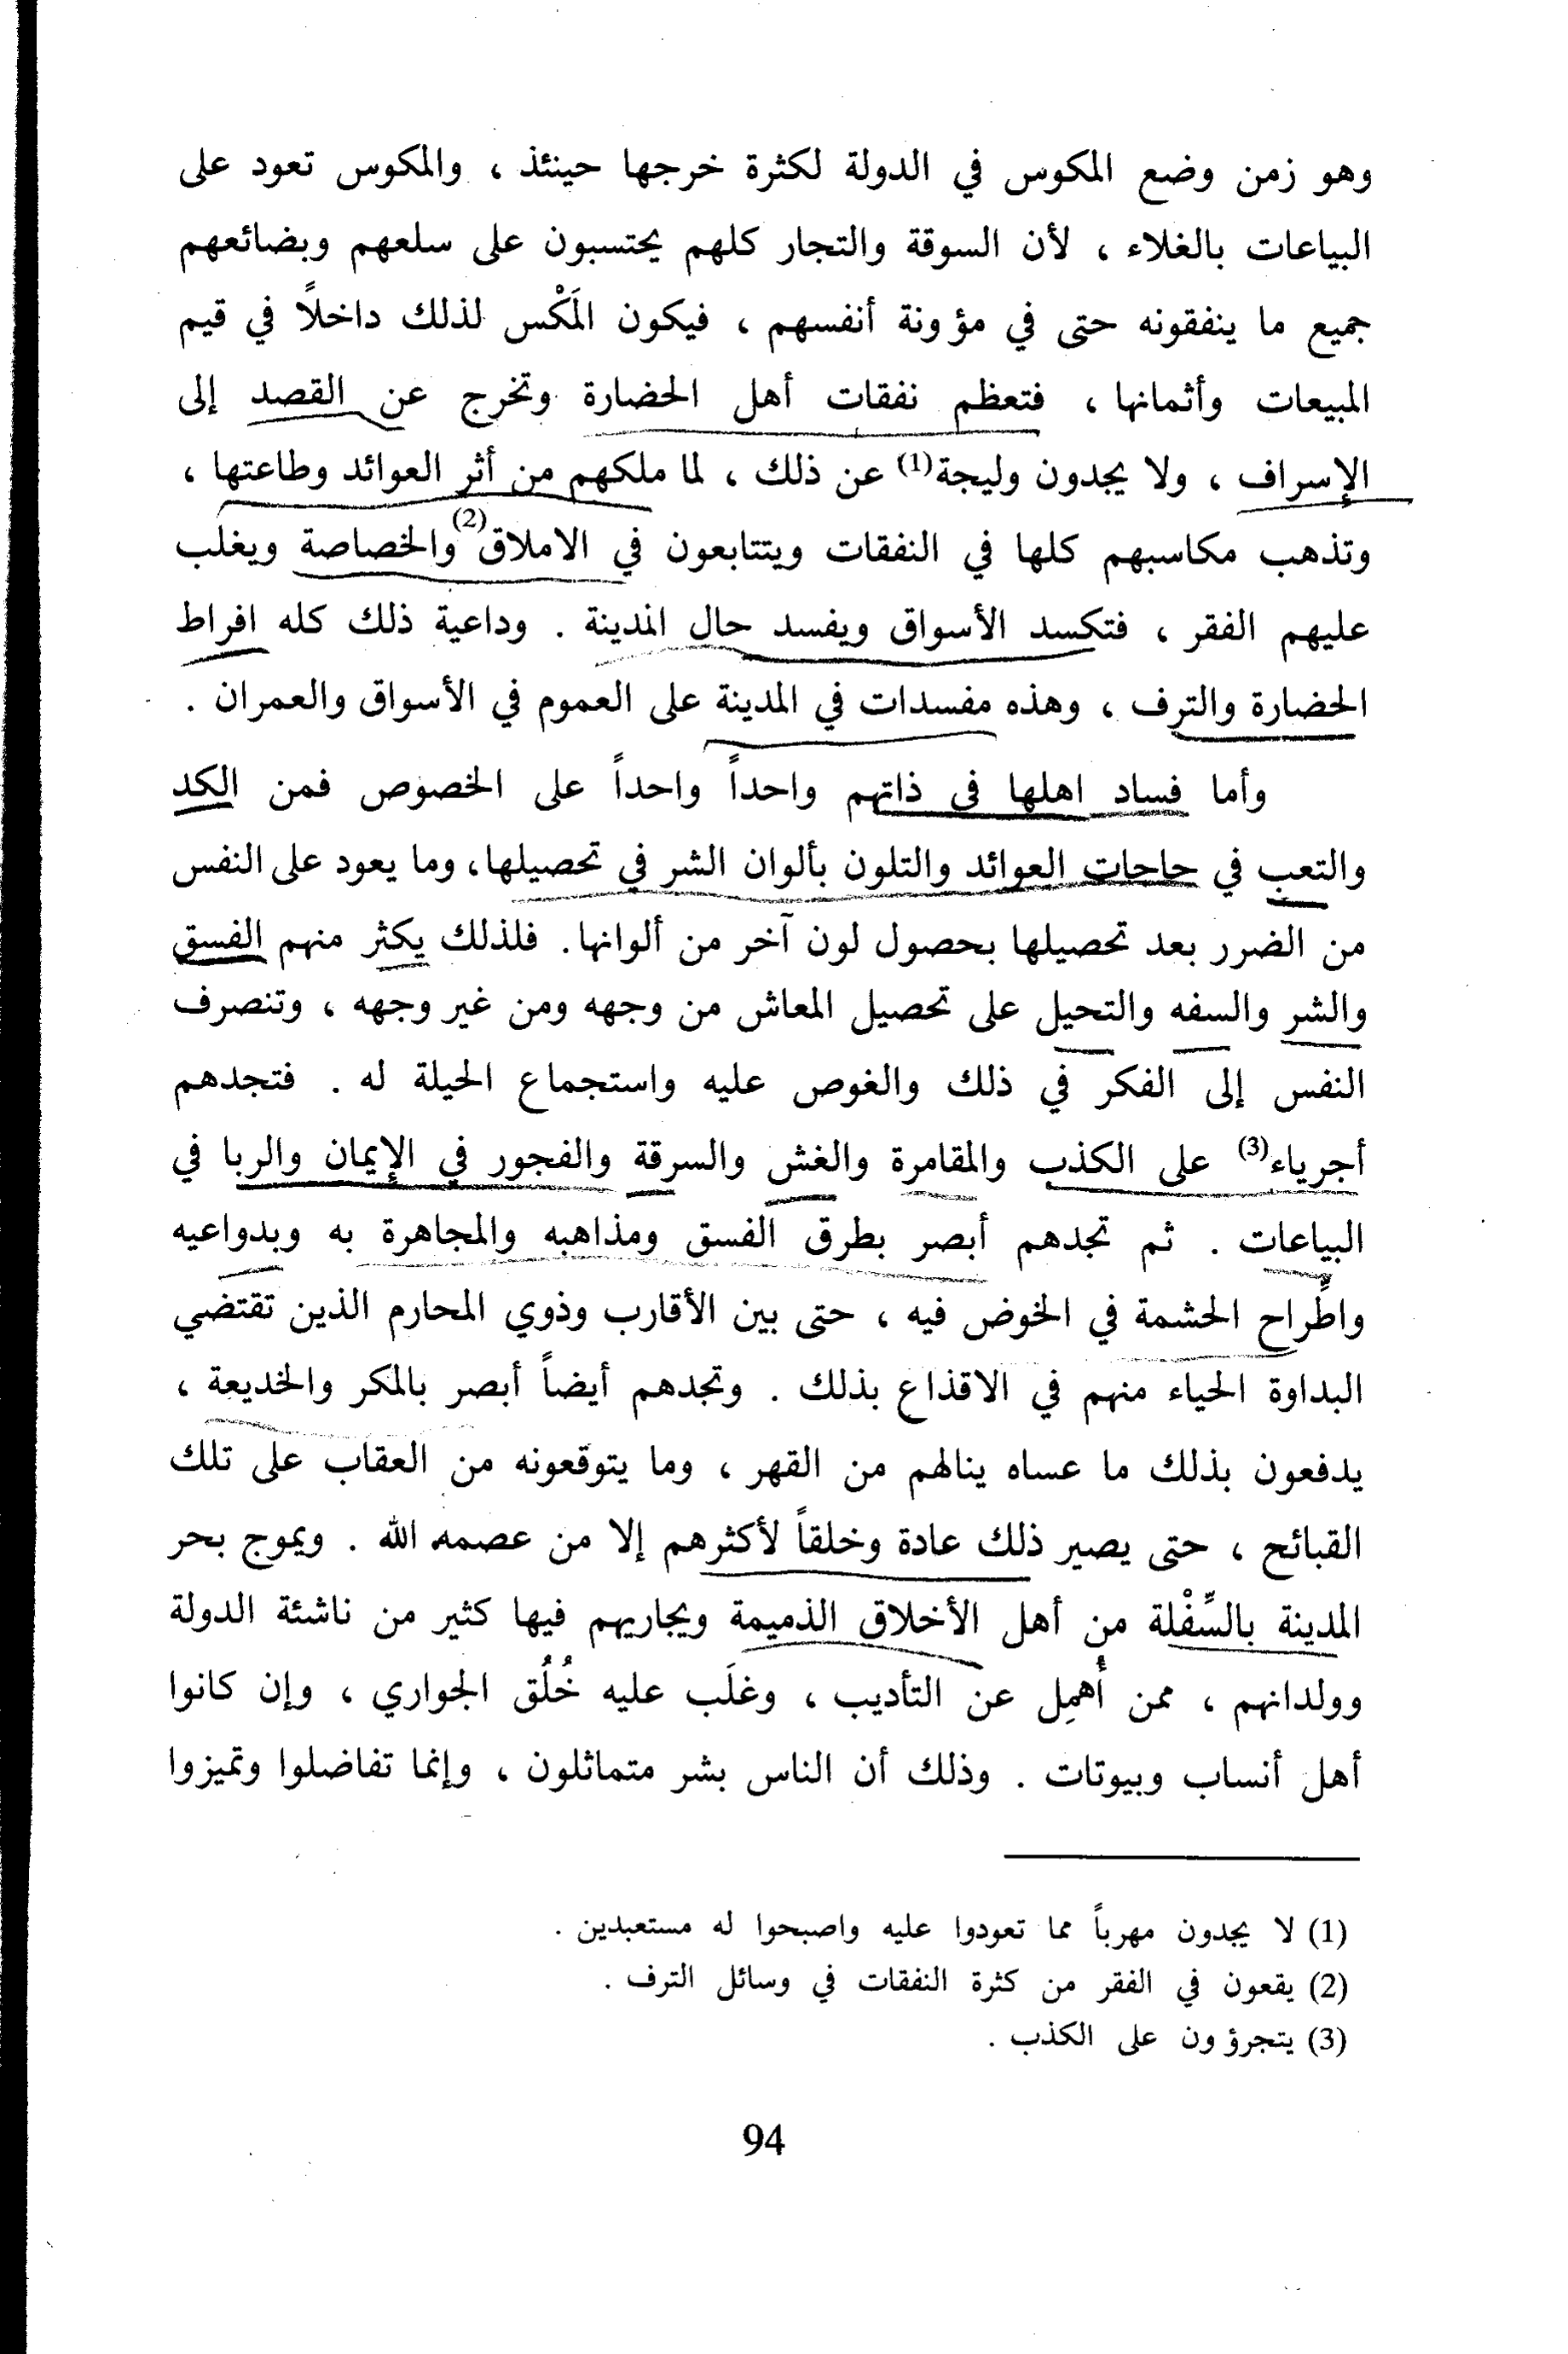 وهو زمن وضع المكوس في الدولة لكثرة خرجها حينئذ ، والمكوس تعود على
البياعات بالغلاء ، لأن السوقة والتجار كلهم يحتسبون على سلعهم وبضائعهم
جميع ما ينفقونه حتى في مؤ ونة أنفسهم ، فيكون المَكْس لذلك داخلاً في قيم
المبيعات وأثمانها ، فتعظم نفقات أهل الحضارة وتخرج عن القصد إلى
الإسراف ، ولا يجدون وليجة(1) عن ذلك ، لما ملكهم من أثر العوائد وطاعتها ،
وتذهب مكاسبهم كلها في النفقات ويتتابعون في الاملاق(2) والخصاصة ويغلب
عليهم الفقر ، فتكسد الأسواق ويفسد حال المدينة . وداعية ذلك كله افراط
الحضارة والترف ، وهذه مفسدات في المدينة على العموم في الأسواق والعمران .
وأما فساد اهلها في ذاتهم واحداً واحداً على الخصوص فمن الكد
والتعب في حاجات العوائد والتلون بألوان الشر في تحصيلها، وما يعود على النفس
من الضرر بعد تحصيلها بحصول لون آخر من ألوانها. فلذلك يكثر منهم الفسق
والشر والسفه والتحيل على تحصيل المعاش من وجهه ومن غير وجهه ، وتنصرف
النفس إلى الفكر في ذلك والغوص عليه واستجماع الحيلة له . فتجدهم
أجرياء(3) على الكذب والمقامرة والغش والسرقة والفجور في الإيمان والربا في
البياعات . ثم تجدهم أبصر بطرق الفسق ومذاهبه والمجاهرة به وبدواعيه
واطِّراح الحشمة في الخوض فيه ، حتى بين الأقارب وذوي المحارم الذين تقتضي
البداوة الحياء منهم في الاقذاع بذلك . وتجدهم أيضاً أبصر بالمكر والخديعة ،
يدفعون بذلك ما عساه ينالهم من القهر ، وما يتوقعونه من العقاب على تلك
القبائح ، حتى يصير ذلك عادة وخلقاً لأكثرهم إلا من عصمه الله . ويموج بحر
المدينة بالسِّفْلة من أهل الأخلاق الذميمة ويجاريهم فيها كثير من ناشئة الدولة
وولدانهم ، ممن أُهمِل عن التأديب ، وغلَب عليه خُلُق الجواري ، وإن كانوا
أهل أنساب وبيوتات . وذلك أن الناس بشر متماثلون ، وإنما تفاضلوا وتميزوا
(1) لا يجدون مهرباً مما تعودوا عليه واصبحوا له مستعبدين .
(2) يقعون في الفقر من كثرة النفقات في وسائل الترف .
(3) يتجرؤ ون على الكذب .
94